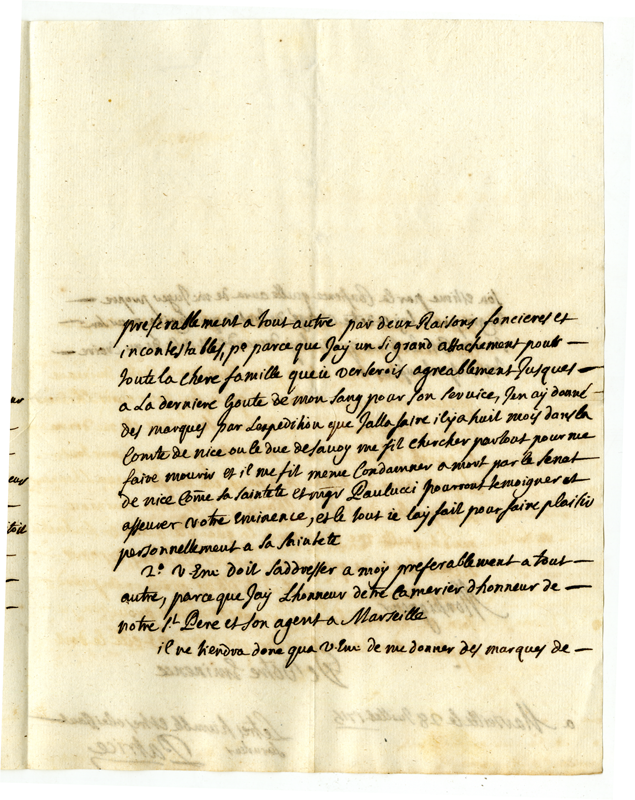 preferablement a tout autre par deux Raisons foncieres et
incontestables, p.o parce que Jay un si grand attachement pour —
toute la chere famille que ie verserois agreablement Jusques —
a La derniere Goute de mon sang pour son service, Jen ay donné
des marques par Lexpedition que Jallai faire il ya huit mois dans la
Comté de nice ou le duc de savoy me fit chercher partout pour me
faire mourir et il me fit meme Condamner a mort par le senat
de nice Côme sa sainteté et mgr Paulucci pourront temoigner et
asseurer Votre eminence, et le tout ie lay fait pour faire plaisir
personnellement a sa sainteté
2.o v. Em.ce Doit Saddresser a moy preferablement a tout —
autre, parce que Jay Lhonneur detre Camerier dhonneur de —
notre S.t Pere et son agent a Marseille
il ne tiendra donc qua v. Em.ce de me donner des marques de —